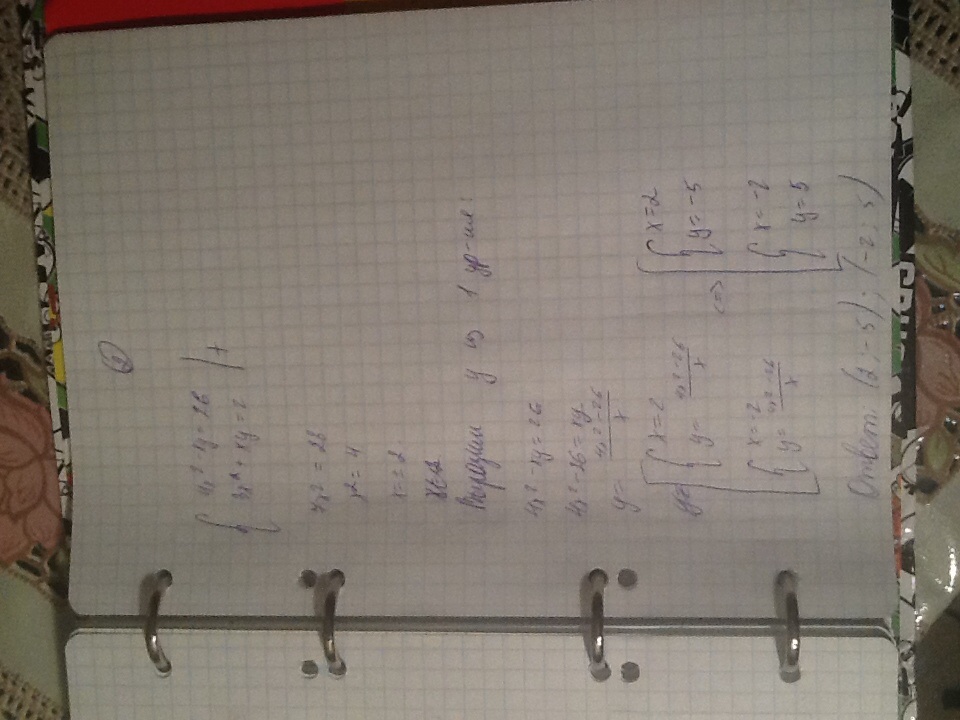 ②
{ 4x² - xy = 26 | +
3x² + xy = 2
7x² = 28
x² = 4
x = ± 2
Выразим y из 1 ур-ия:
4x² - xy = 26
4x² - 26 = xy
y = (4x² - 26)/x
[ { x = 2
y = (4x² - 26)/x
{ x = -2
y = (4x² - 26)/x
<=> [ { x = 2
y = -5
{ x = -2
y = 5
Ответ: (2; -5); (-2; 5)